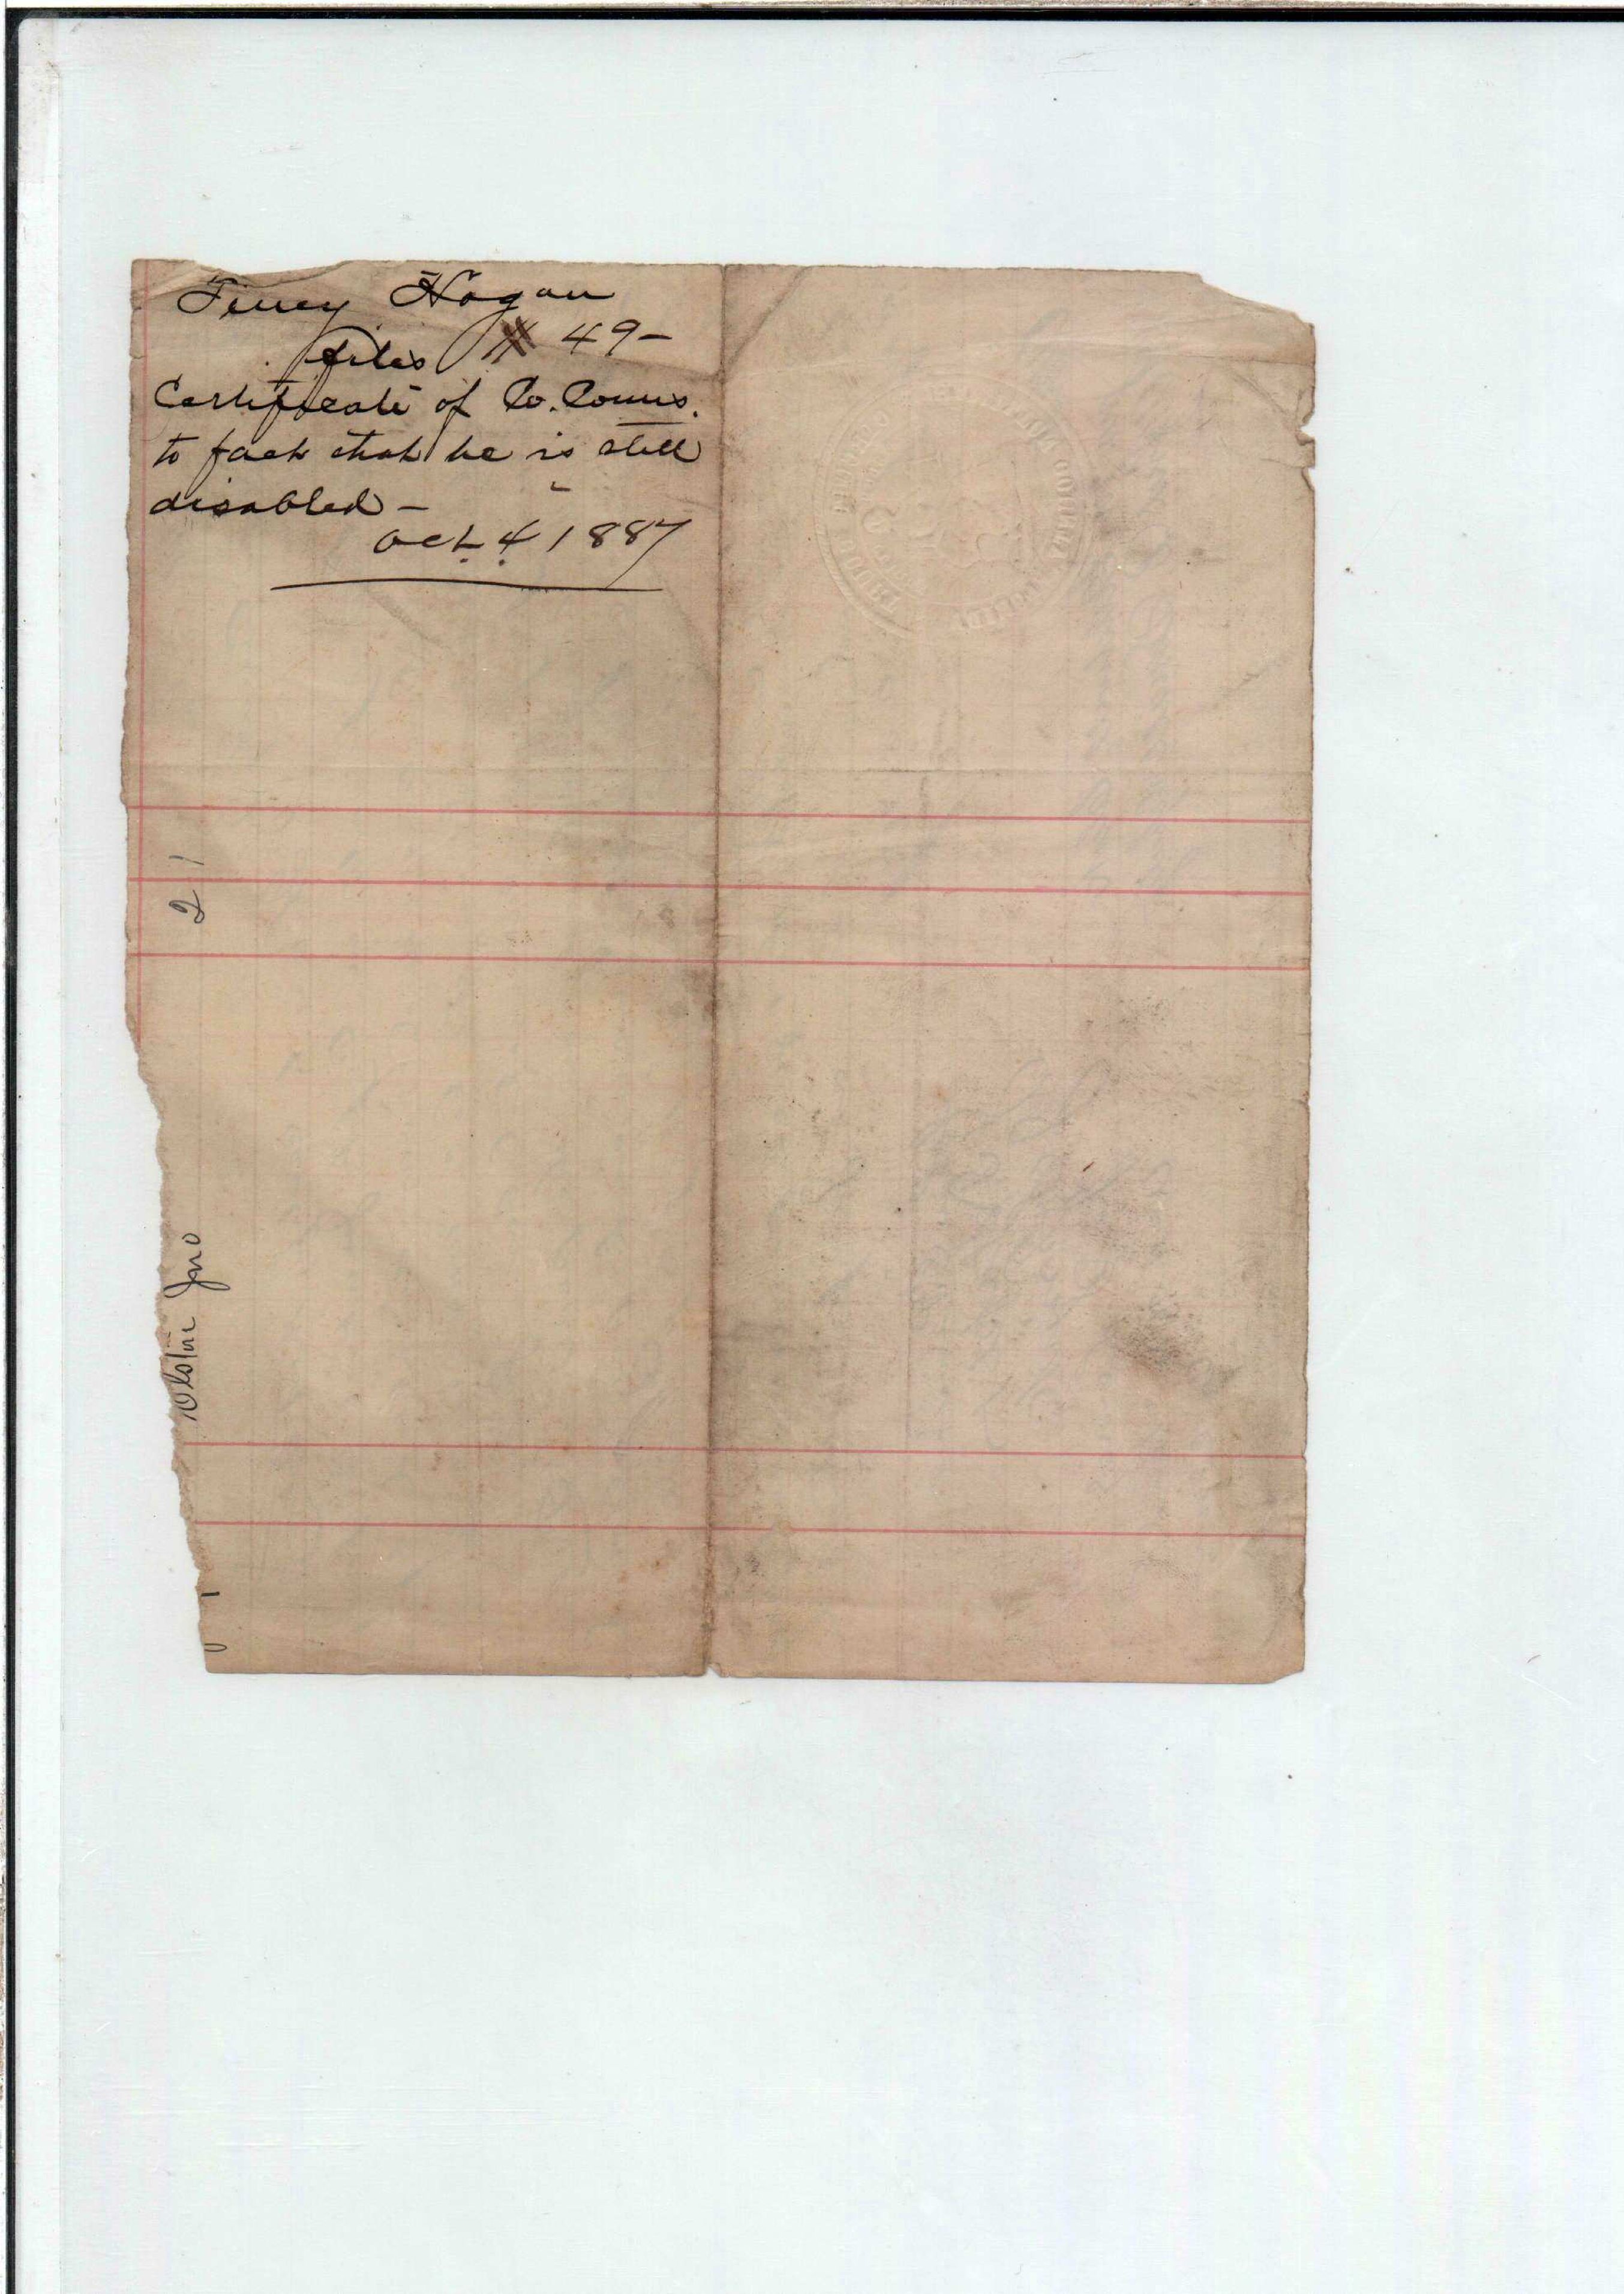 Hogan
files # 49-
Certificate of Co. Comrs.
to fact that he is still
disabled -
Oct. 4 1887
21
Jno